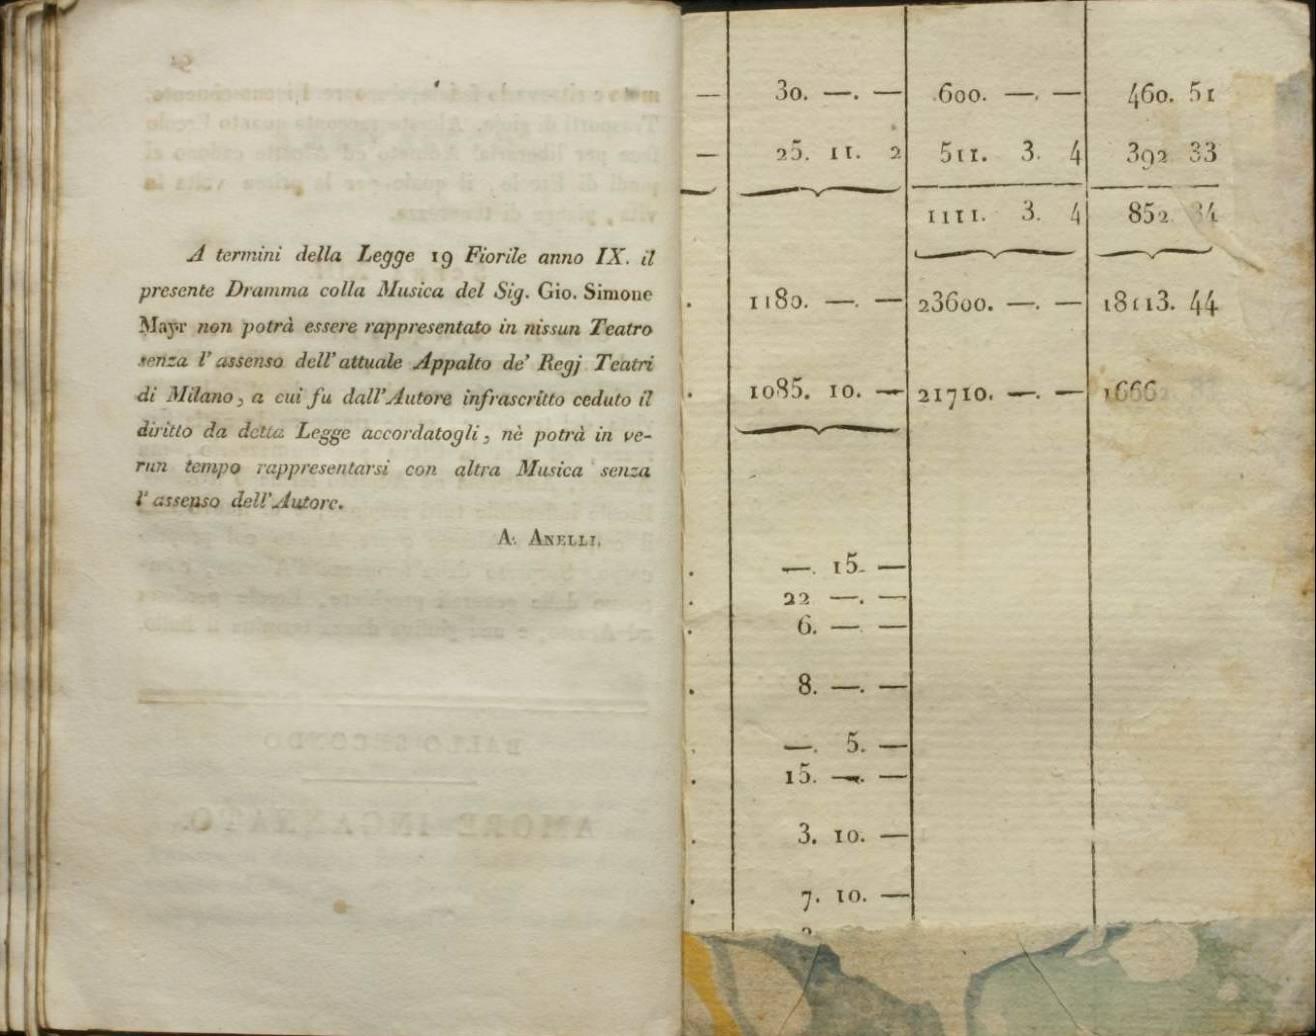 A termini della Legge 19 Fiorile anno IX. il
presente Dramma colla Musica del Sig. Gio. Simone
Mayr non potrà essere rappresentato in nissun Teatro
senza l'assenso dell'attuale Appalto de' Regj Teatri
di Milano, a cui fu dall'Autore infrascritto ceduto il
diritto da detta Legge accordatogli, nè potrà in ve-
run tempo rappresentarsi con altra Musica senza
l'assenso dell'Autore.
A. ANELLI.
— 30. —. — 600. —. — 460. 51
— 25. 11. 2 511. 3. 4 392 33
1111. 3. 4 852 84
. 1180. —. — 23600. —. — 18113. 44
. 1085. 10. — 21710. —. — 1666
. —. 15. —
. 22 —. —
. 6. — —
. 8. —. —
. —. 5. —
. 15. —. —
. 3. 10. —
. 7. 10. —